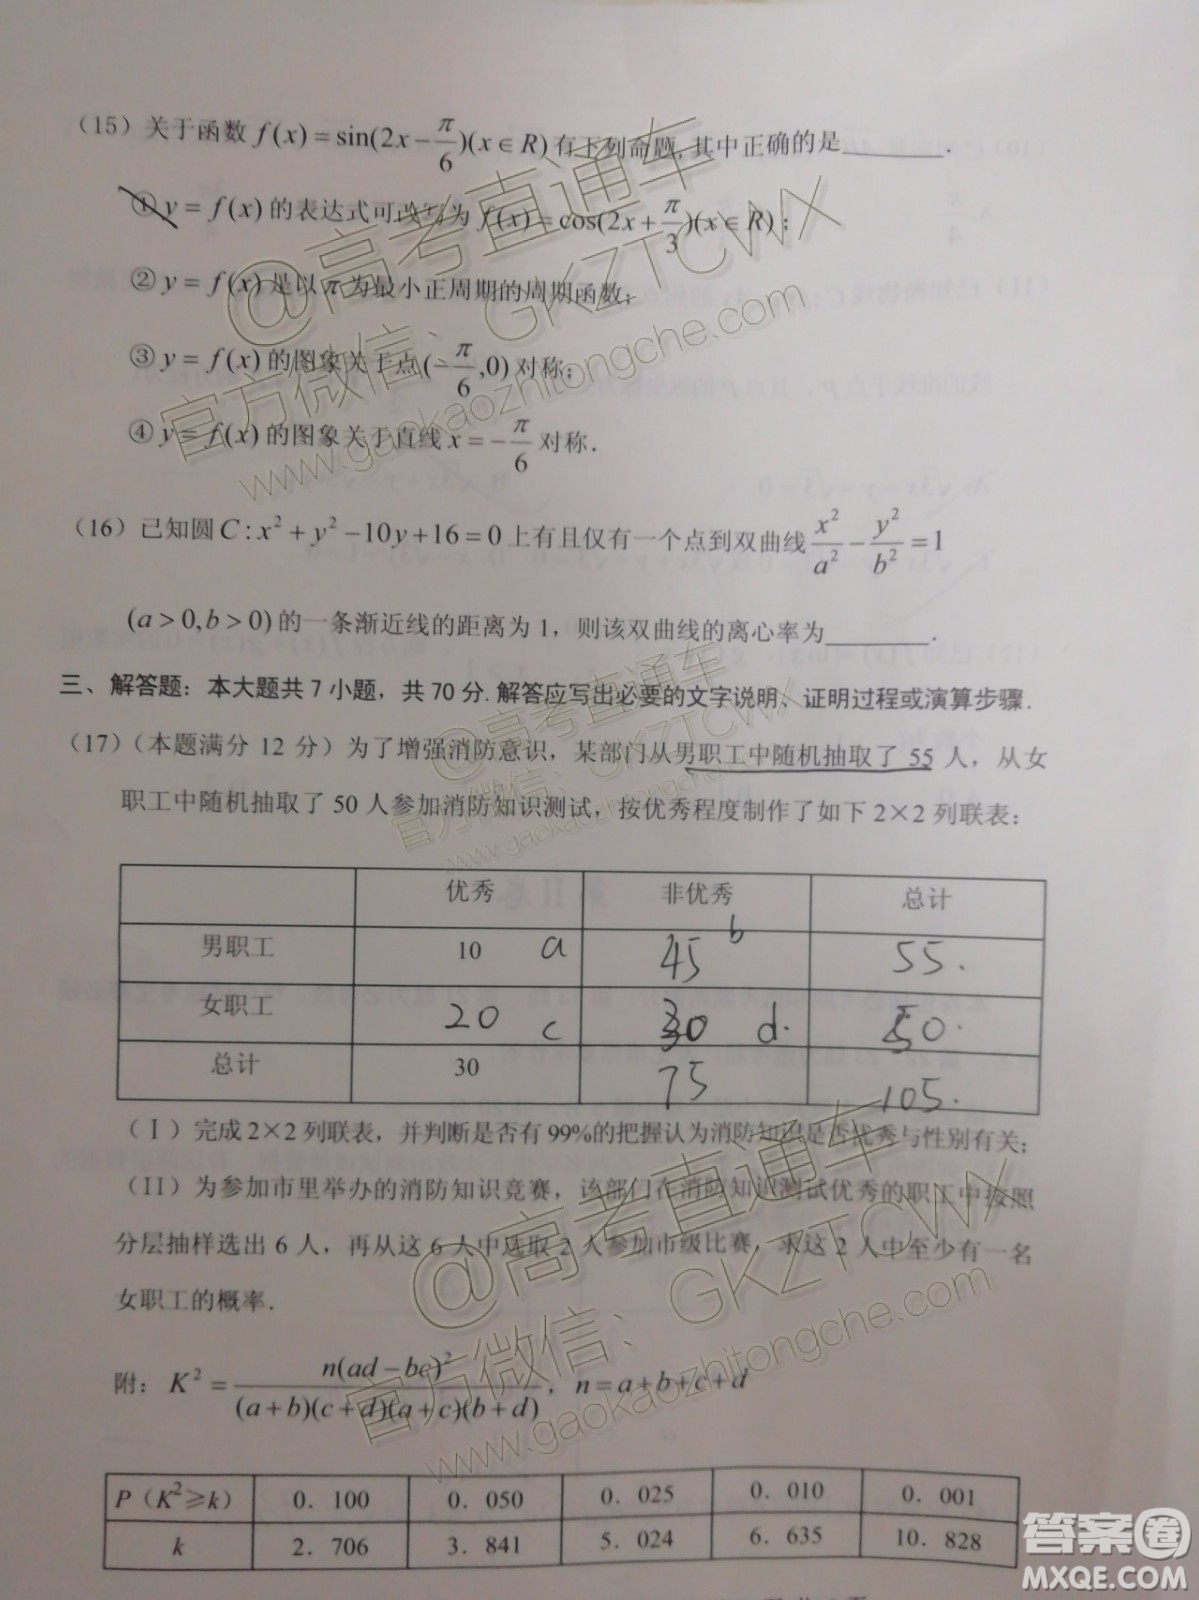 （15）关于函数 f(x)=sin(2x−π/6)(x∈R)有下列命题,其中正确的是______.
① y=f(x)的表达式可改写为 f(x)=cos(2x+π/3)(x∈R)；
② y=f(x)是以π为最小正周期的周期函数；
③ y=f(x)的图象关于点(−π/6,0)对称；
④ y=f(x)的图象关于直线x=−π/6对称.
（16）已知圆C:x²+y²−10y+16=0上有且仅有一个点到双曲线x²/a²−y²/b²=1
(a>0,b>0)的一条渐近线的距离为1，则该双曲线的离心率为______.
三、解答题：本大题共7小题，共70分.解答应写出必要的文字说明、证明过程或演算步骤.
（17）（本题满分12分）为了增强消防意识，某部门从男职工中随机抽取了55人，从女
职工中随机抽取了50人参加消防知识测试，按优秀程度制作了如下2×2列联表：
优秀 非优秀 总计
男职工 10 a 45 b 55.
女职工 20 c 30 d. 50.
总计 30 75 105.
（Ⅰ）完成2×2列联表，并判断是否有99%的把握认为消防知识是否优秀与性别有关；
（II）为参加市里举办的消防知识竞赛，该部门在消防知识测试优秀的职工中按照
分层抽样选出6人，再从这6人中选取2人参加市级比赛，求这2人中至少有一名
女职工的概率.
附：K²=n(ad−bc)²/((a+b)(c+d)(a+c)(b+d))，n=a+b+c+d
P（K²≥k） 0.100 0.050 0.025 0.010 0.001
k 2.706 3.841 5.024 6.635 10.828
@高考直通车
官方微信：GKZTCWX
www.gaokaozhitongche.com
@高考直通车
官方微信：GKZTCWX
www.gaokaozhitongche.com
@高考直通车
官方微信：GKZTCWX
www.gaokaozhitongche.com
答案圈
MXQE.COM